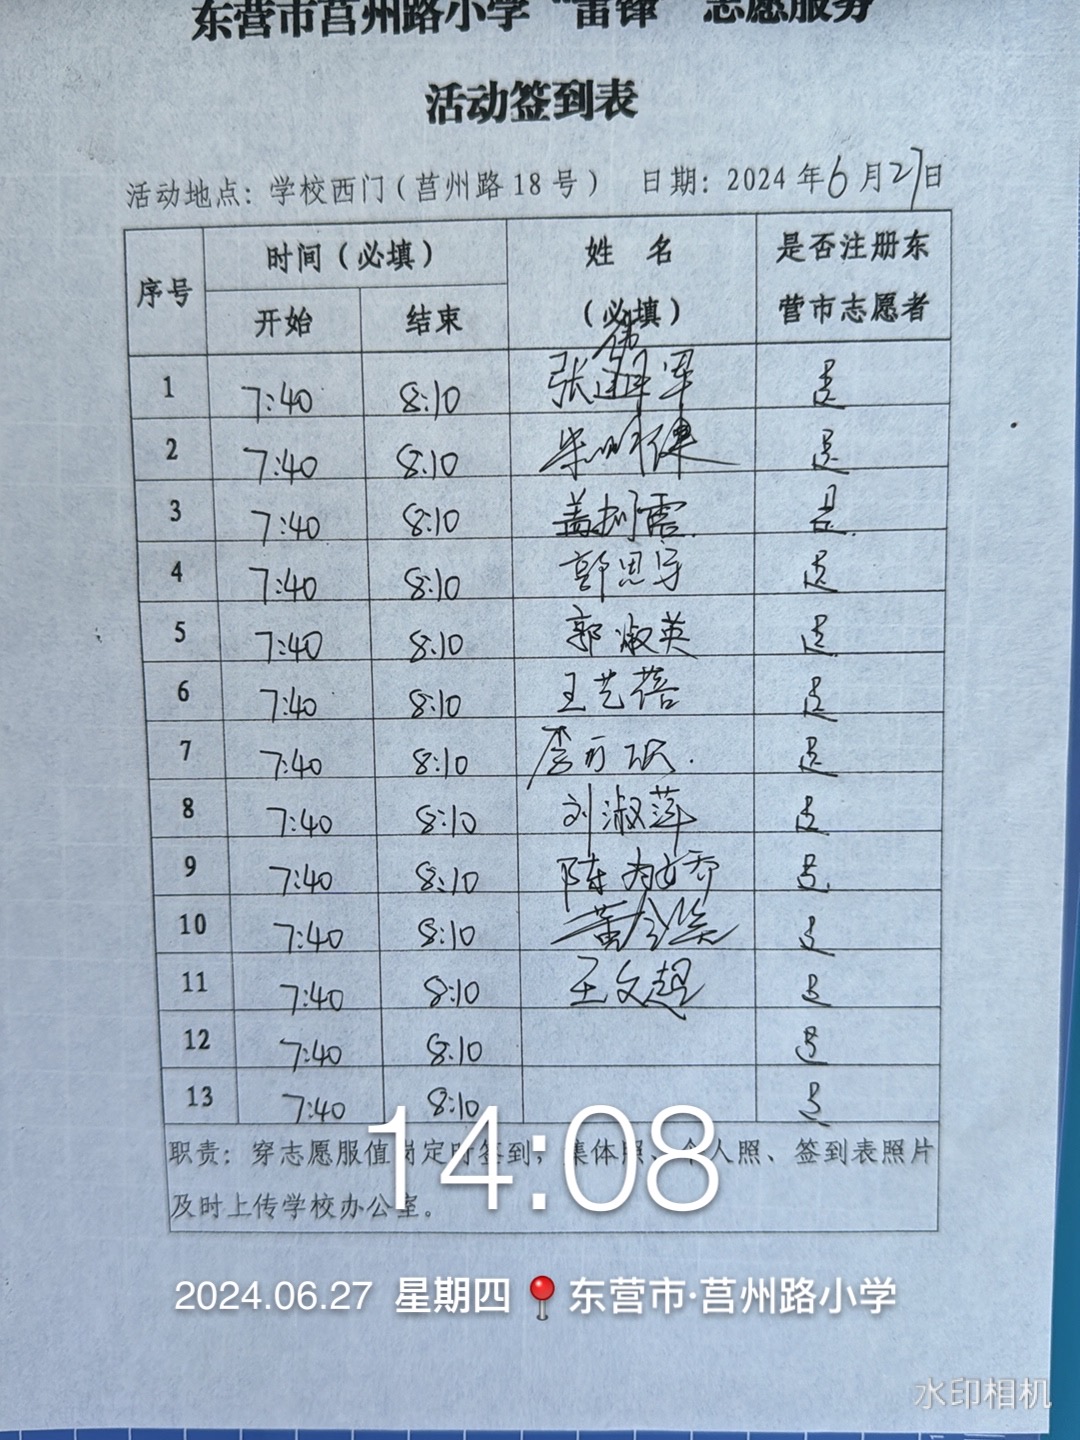 东营市莒州路小学“雷锋”志愿服务
活动签到表
活动地点：学校西门（莒州路18号） 日期：2024年6月27日
序号 时间（必填） 姓 名（必填） 是否注册东营市志愿者
开始 结束
1 7:40 8:10 是
2 7:40 8:10 是
3 7:40 8:10 是
4 7:40 8:10 郭思宇 是
5 7:40 8:10 郭淑英 是
6 7:40 8:10 王艺蓓 是
7 7:40 8:10 是
8 7:40 8:10 刘淑萍 是
9 7:40 8:10 陈 是
10 7:40 8:10 是
11 7:40 8:10 王文超 是
12 7:40 8:10 是
13 7:40 8:10 是
职责：穿志愿服值岗定时签到，集体照、个人照、签到表照片
及时上传学校办公室。
14:08
2024.06.27 星期四 东营市·莒州路小学
水印相机